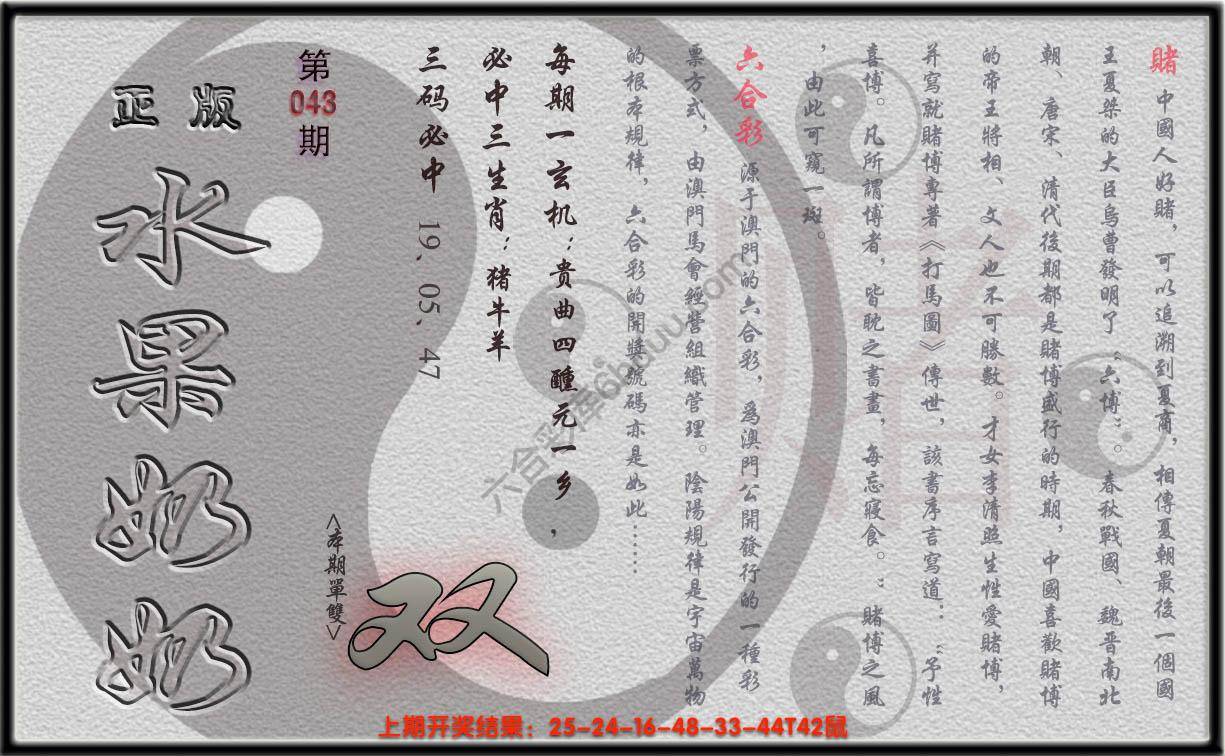 賭 中國人好賭，可以追溯到夏商，相傳夏朝最後一個國
王夏桀的大臣烏曹發明了“六博”。春秋戰國、魏晋南北
朝、唐宋、清代後期都是賭博盛行的時期，中國喜歡賭博
的帝王將相、文人也不可勝數。才女李清照生性愛賭博，
并寫就賭博專著《打馬圖》傳世，該書序言寫道：“予性
喜博。凡所謂博者，皆耽之書畫，每忘寢食。”賭博之風
，由此可窺一斑。
六合彩 源于澳門的六合彩，爲澳門公開發行的一種彩
票方式，由澳門馬會經營組織管理。陰陽規律是宇宙萬物
的根本規律，六合彩的開獎號碼亦是如此……
每期一玄机：贵曲四醺元一乡，
必中三生肖：猪牛羊
三码必中 19、05、47
第
043
期
<本期單雙>
双
正版
水果奶奶
賭
六合彩库6huuu.com
上期开奖结果：25-24-16-48-33-44T42鼠